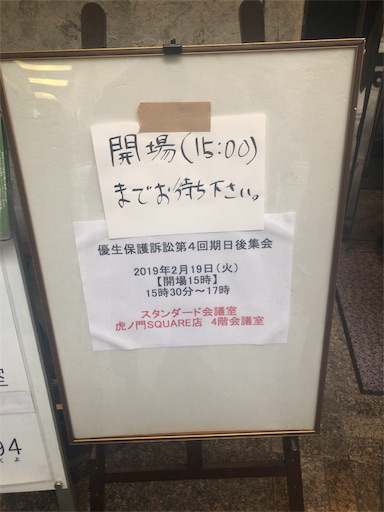 開場(15:00)
までお待ち下さい。
優生保護訴訟第4回期日後集会
2019年2月19日(火)
【開場15時】
15時30分～17時
スタンダード会議室
虎ノ門SQUARE店 4階会議室
室
94